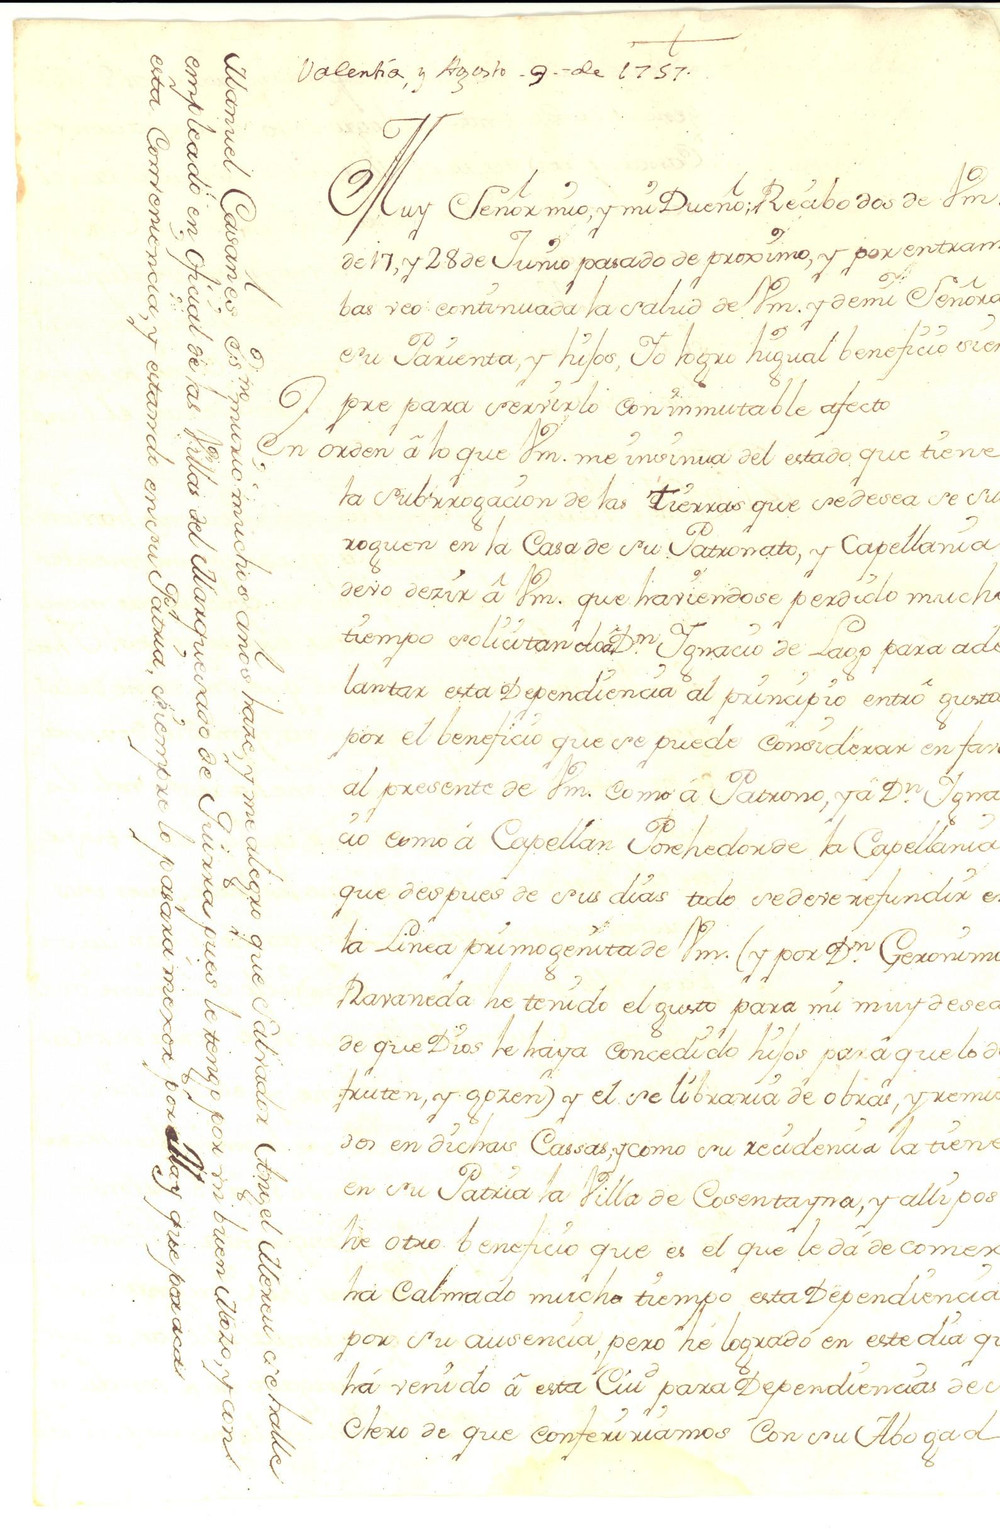 Valentia, y Agosto - 9 - de 1757.
Muy Señor mio, y mi Dueño; Recibo dos de Vm.
de 17, y 28 de Junio pasado de proximo, y por entram
bas veo continuada la salud de Vm. y de mi Señora
su Parienta, y hijos, Yo logro higual beneficio siem
pre para servirlo con inmutable afecto
En orden â lo que Vm. me insinua del estado que tiene
la subrrogacion de las tierras que se desea se su
roguen en la Casa de su Patronato, y Capellania
devo dezir â Vm. que haviendose perdido mucho
tiempo solicitando a Dn. Ygnacio de Lago para ade
lantar esta Dependiencia al principio entrô gusto
por el beneficio que se puede considerar en fav
al presente de Vm. como â Patrono, y â Dn. Ygna
cio como â Capellan Porehedor de la Capellania
que despues de sus dias todo se deve refundir e
la Linea primogenita de Vm. (y por Dn. Geronimo
Ravaneda he tenido el gusto para mi muy desea
do que Dios le haya concedido hijos para que lo d
fruten, y gozen) y el se libraria de obras, y remie
dos en dichas Cassas, y como su recidencia la tiene
en su Patria la Villa de Cosentayna, y alli pos
he otro beneficio que es el que le da de comer
ha calmado mucho tiempo esta Dependiencia
por su ausencia, pero hê logrado en este dia qu
hâ venido â esta Ciud. para Dependiencias de s
Clero de que confeririamos con su Abogad
Manuel Casanes es mo. murio muchos años haze, y me alegro que Salvador Angel Mereu se halle
empleado en oficial de las Villas del Marquesado de Guirra pues le tengo por un buen Mozo, y con
esta Conveniencia, y estando en su Patria, siempre lo pasara mexor por alla y que por aca